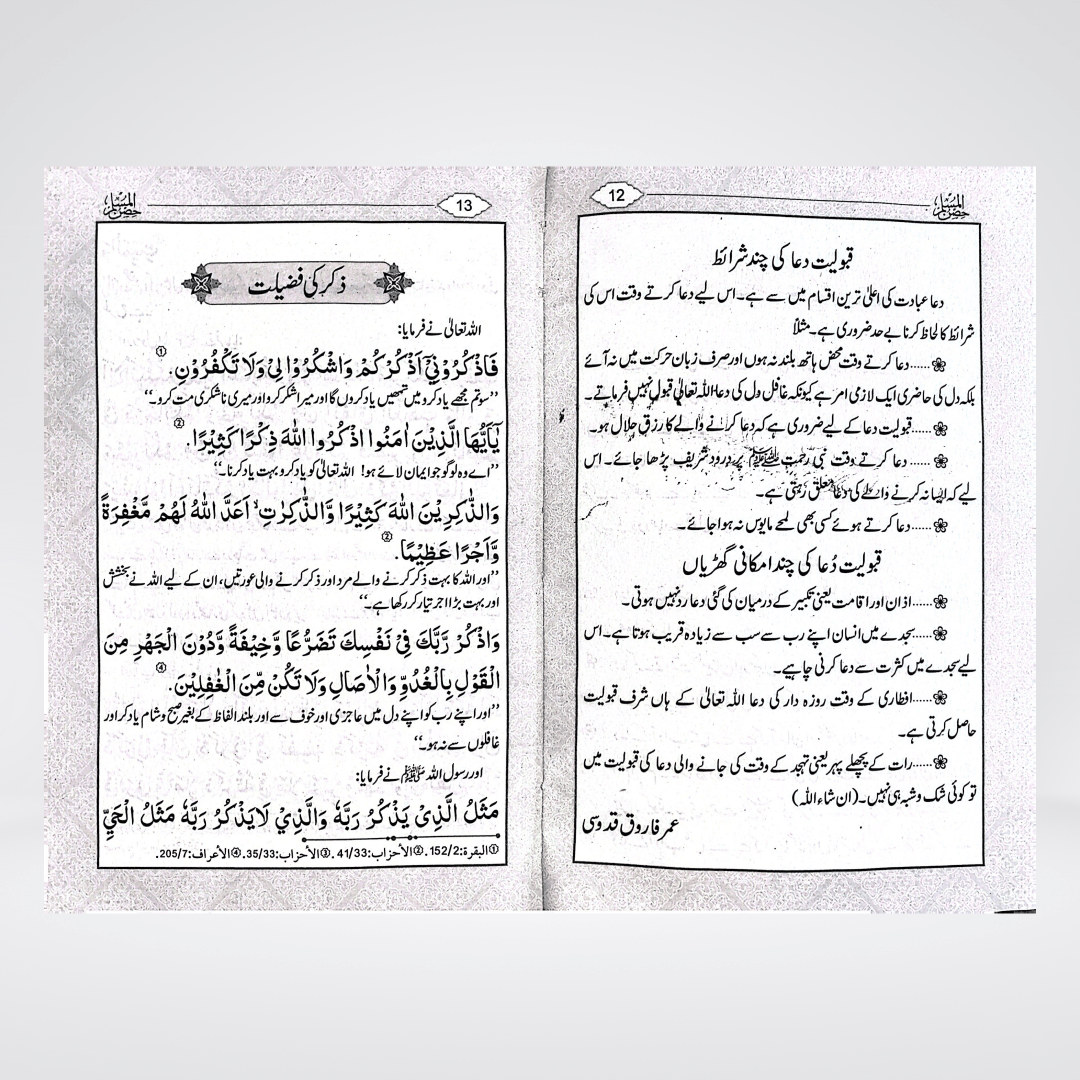 12
حصن المسلم
قبولیت دعا کی چند شرائط
دعا عبادت کی اعلیٰ ترین اقسام میں سے ہے۔ اس لیے دعا کرتے وقت اس کی
شرائط کا لحاظ کرنا بے حد ضروری ہے۔ مثلاً
❀......دعا کرتے وقت محض ہاتھ بلند نہ ہوں اور صرف زبان حرکت میں نہ آئے
بلکہ دل کی حاضری ایک لازمی امر ہے کیونکہ غافل دل کی دعا اللہ تعالیٰ قبول نہیں فرماتے۔
❀......قبولیت دعا کے لیے ضروری ہے کہ دعا کرنے والے کا رزق حلال ہو۔
❀......دعا کرتے وقت نبی رحمت ﷺ پر درود شریف پڑھا جائے۔ اس
لیے کہ ایسا نہ کرنے والے کی دعا معلق رہتی ہے۔
❀......دعا کرتے ہوئے کسی بھی لمحے مایوس نہ ہوا جائے۔
قبولیت دُعا کی چند امکانی گھڑیاں
❀......اذان اور اقامت یعنی تکبیر کے درمیان کی گئی دعا رد نہیں ہوتی۔
❀......سجدے میں انسان اپنے رب سے سب سے زیادہ قریب ہوتا ہے۔ اس
لیے سجدے میں کثرت سے دعا کرنی چاہیے۔
❀......افطاری کے وقت روزہ دار کی دعا اللہ تعالیٰ کے ہاں شرف قبولیت
حاصل کرتی ہے۔
❀......رات کے پچھلے پہر یعنی تہجد کے وقت کی جانے والی دعا کی قبولیت میں
تو کوئی شک و شبہ ہی نہیں۔ (ان شاء اللہ)
عمر فاروق قدوسی
13
حصن المسلم
ذکر کی فضیلت
اللہ تعالیٰ نے فرمایا:
فَاذْكُرُوْنِيْٓ اَذْكُرْكُمْ وَاشْكُرُوْا لِيْ وَلَا تَكْفُرُوْنِ. ①
’’سو تم مجھے یاد کرو میں تمھیں یاد کروں گا اور میرا شکر کرو اور میری ناشکری مت کرو۔‘‘
يٰٓاَيُّهَا الَّذِيْنَ اٰمَنُوا اذْكُرُوا اللّٰهَ ذِكْرًا كَثِيْرًا. ②
’’اے وہ لوگو جو ایمان لائے ہو! اللہ تعالیٰ کو یاد کرو بہت یاد کرنا۔‘‘
وَالذّٰكِرِيْنَ اللّٰهَ كَثِيْرًا وَّالذّٰكِرٰتِ ۙ اَعَدَّ اللّٰهُ لَهُمْ مَّغْفِرَةً
وَّاَجْرًا عَظِيْمًا. ②
’’اور اللہ کا بہت ذکر کرنے والے مرد اور ذکر کرنے والی عورتیں، ان کے لیے اللہ نے بخشش
اور بہت بڑا اجر تیار کر رکھا ہے۔‘‘
وَاذْكُرْ رَّبَّكَ فِيْ نَفْسِكَ تَضَرُّعًا وَّخِيْفَةً وَّدُوْنَ الْجَهْرِ مِنَ
الْقَوْلِ بِالْغُدُوِّ وَالْاٰصَالِ وَلَا تَكُنْ مِّنَ الْغٰفِلِيْنَ. ④
’’اور اپنے رب کو اپنے دل میں عاجزی اور خوف سے اور بلند الفاظ کے بغیر صبح و شام یاد کر اور
غافلوں سے نہ ہو۔‘‘
اور رسول اللہ ﷺ نے فرمایا:
مَثَلُ الَّذِيْ يَذْكُرُ رَبَّهٗ وَالَّذِيْ لَا يَذْكُرُ رَبَّهٗ مَثَلُ الْحَيِّ
①البقرة:152/2. ②الأحزاب:41/33. ③الأحزاب:35/33. ④الأعراف:205/7.